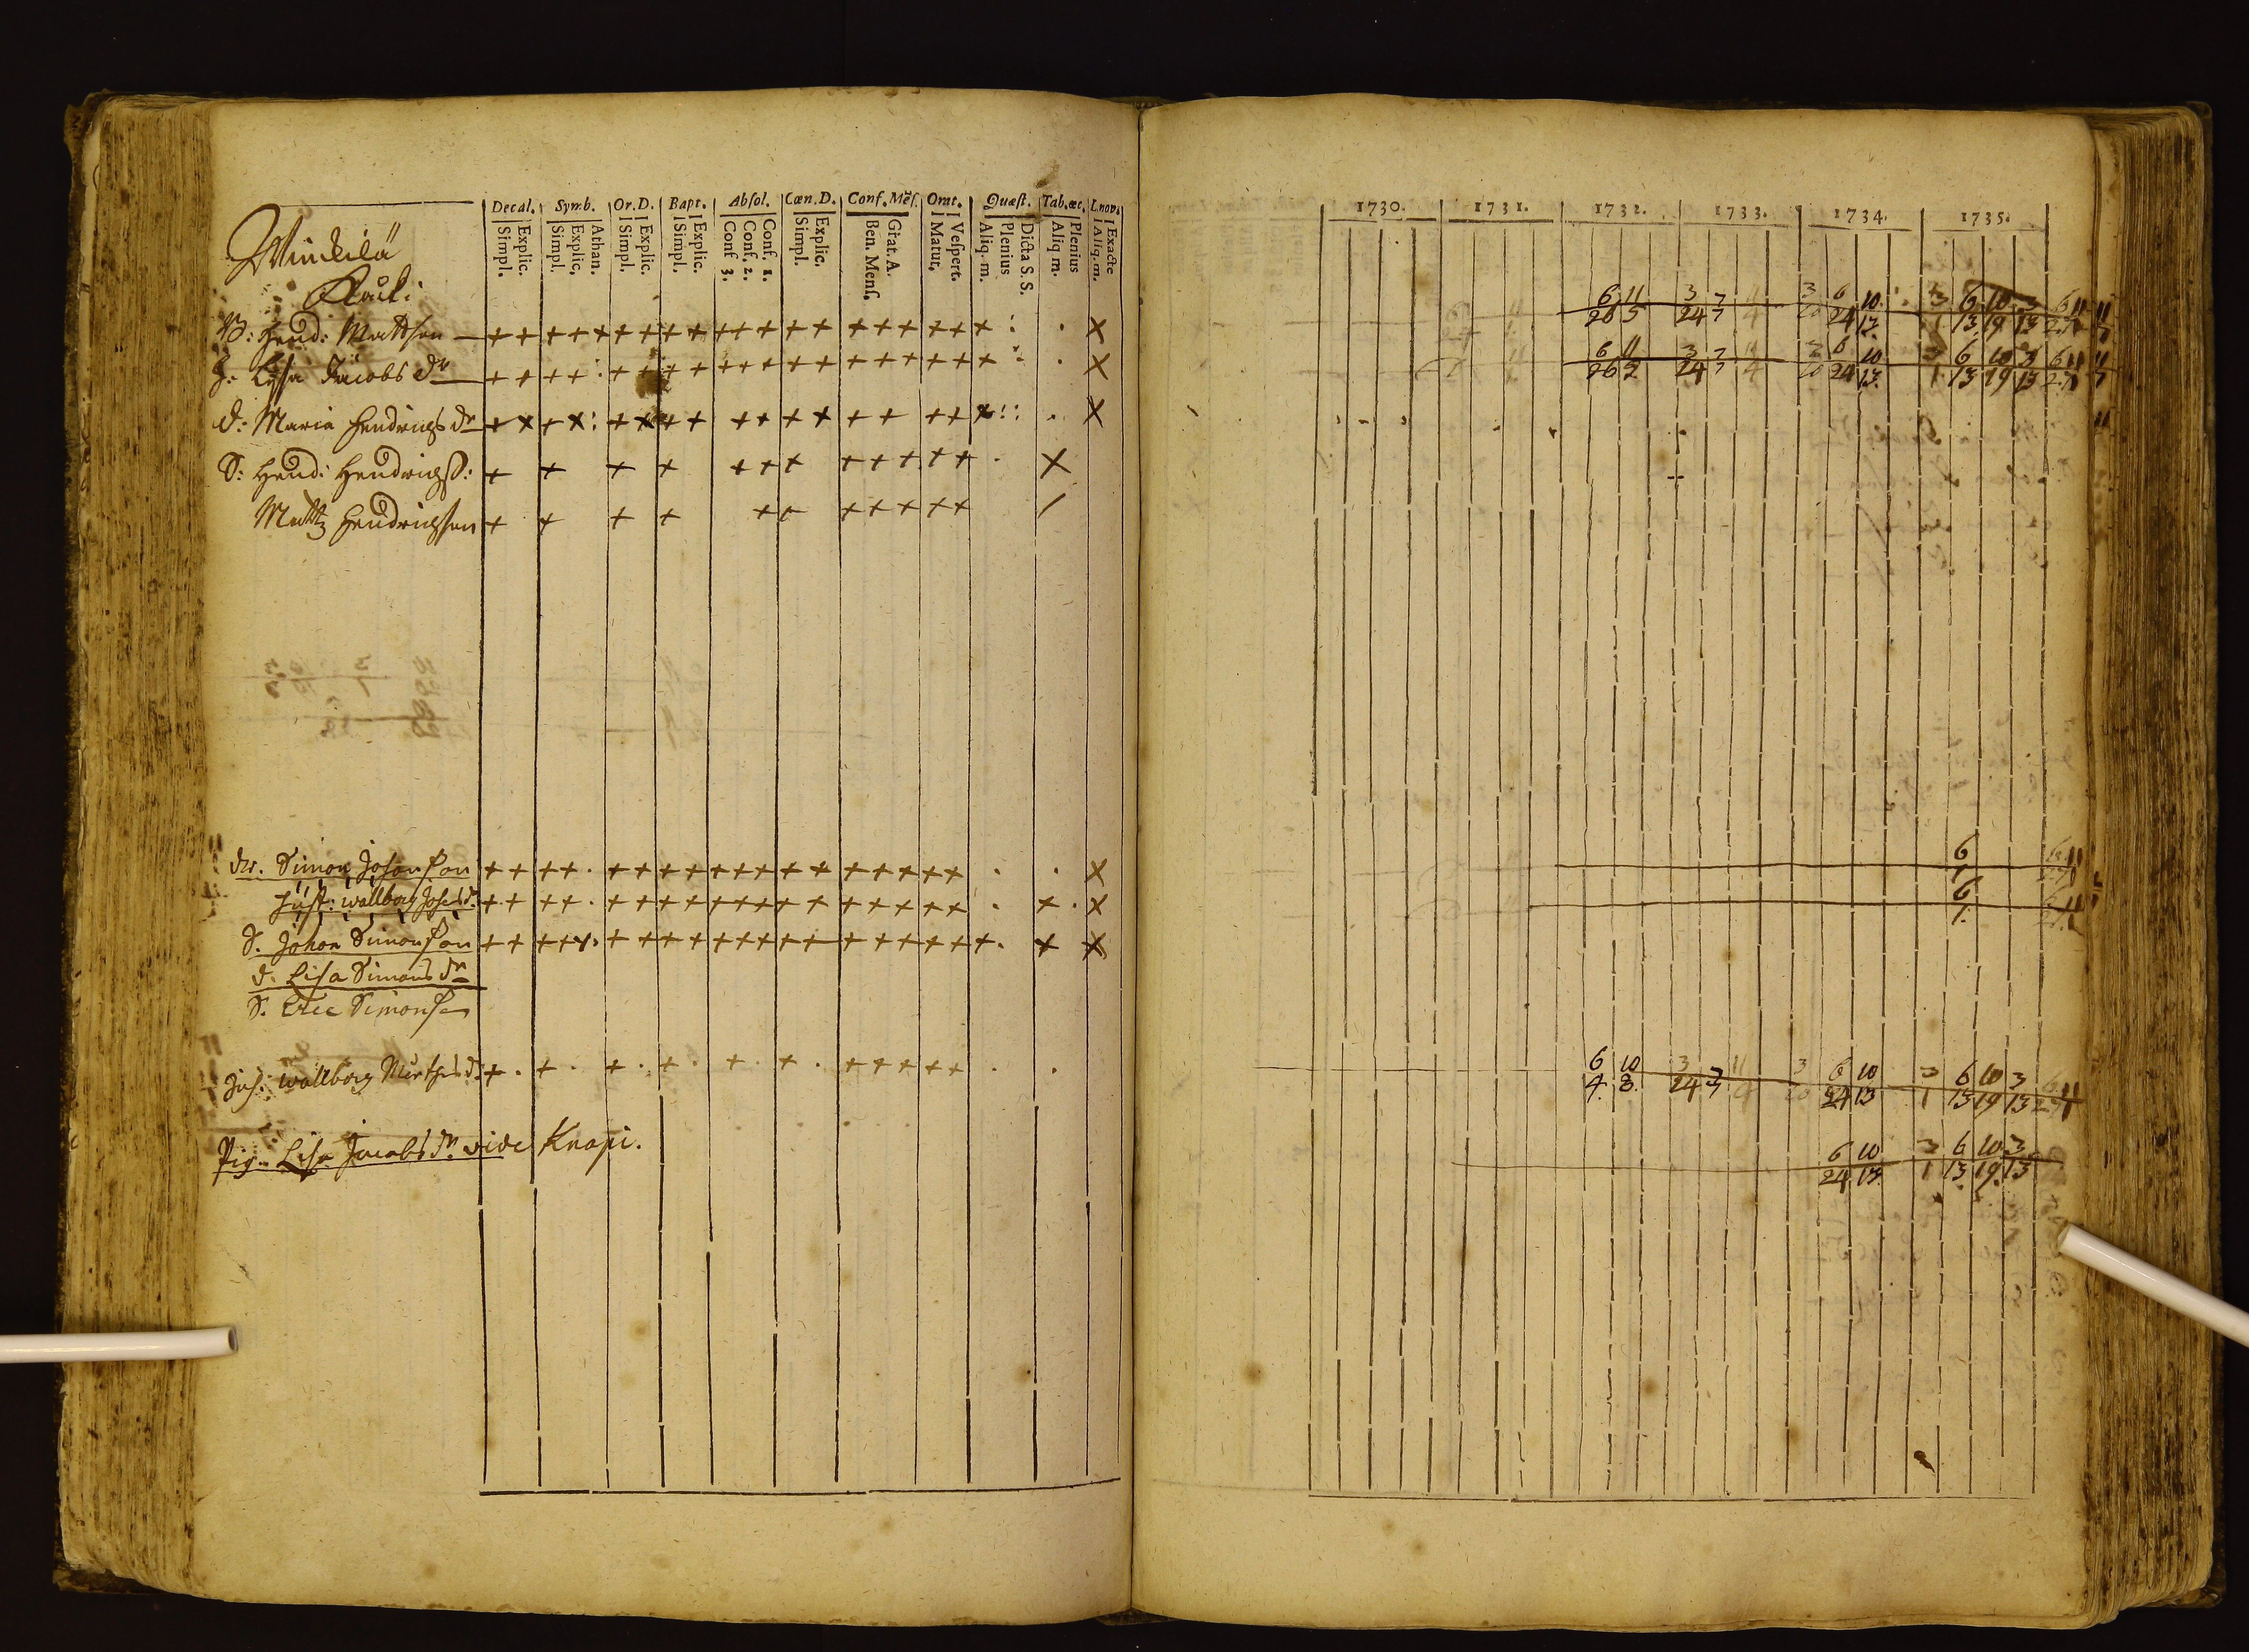 Decal. Symb. Or. D. Bapt. Absol. Cœn. D. Conf. Mēſ. Orat. Quæst. Tab. œc. L. nov.
Explic. Simpl. Athan. Explic, Simpl. Explic. Simpl. Explic. Simpl. Conf. 1. Conf. 2. Conf 3. Explic. Simpl. Grat. A. Ben. Menſ. Veſpert. Matut. Dicta S. S. Plenius Aliq. m. Plenius Aliq m. Exacte Aliq. m.
Rauk:
B: Hend: Mattsson
H: Lisa Jacobs dr
d: Maria Hendrigs dr
S: Hend: Hendrigss:
Mattz Hendrigsson
Simon Johansson
Hust: Wallborg Johs d.
S. Johan Simonsson
d. Lisa Simons dr
S. Eric Simonss
Wallborg
Pig. Lisa Jacobs dr. vide Knapi.
1730. 1731. 1732. 1733. 1734. 1735.
6 11 3 7 3 6 10 3 6 10 3 6 11
26 5 24 7 4 20 24 13. 1 13 19 13
6 11 3 7 3 6 10 3 6 10 3 6 11
26 2 24 7 4 20 24 13. 1 13 19 13
6
1
6
1.
6 10 3 7 11 3 6 10 3 6 10 3
4. 3. 24 7 4 20 24 13 1 13 19 13
6 10 3 6 10 3
24 13. 1 13 19. 13